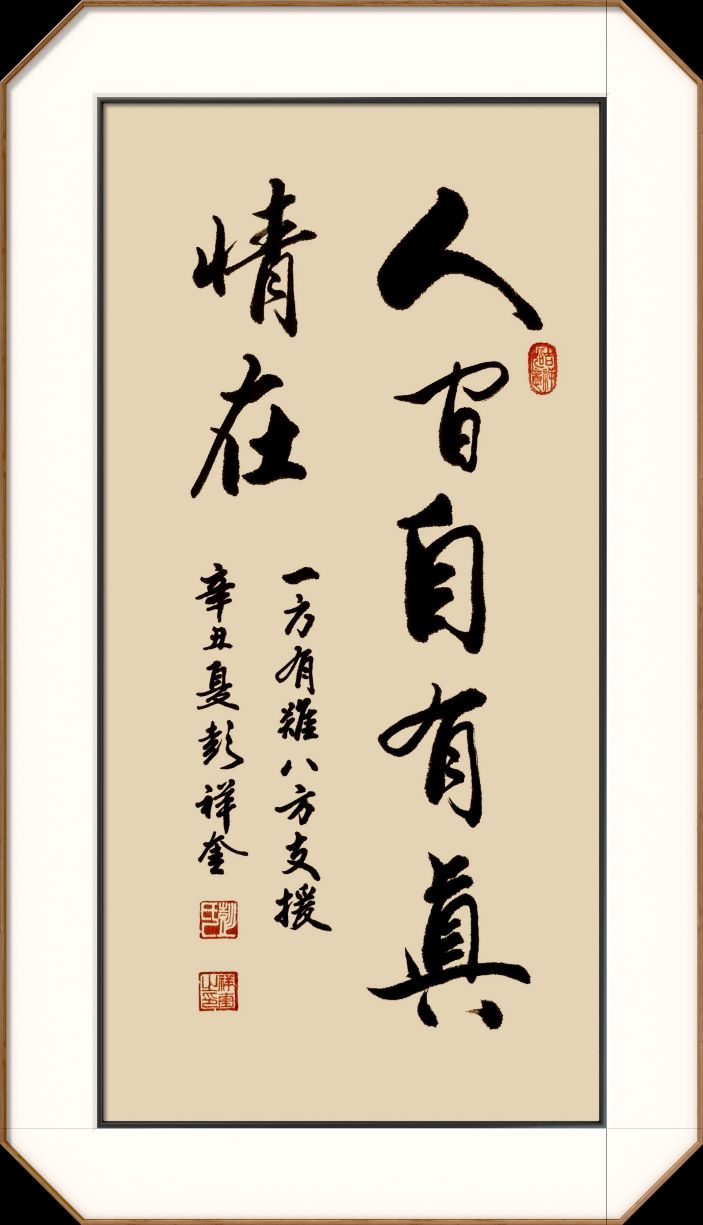 人间自有真
情在
一方有难八方支援
辛丑夏彭祥奎